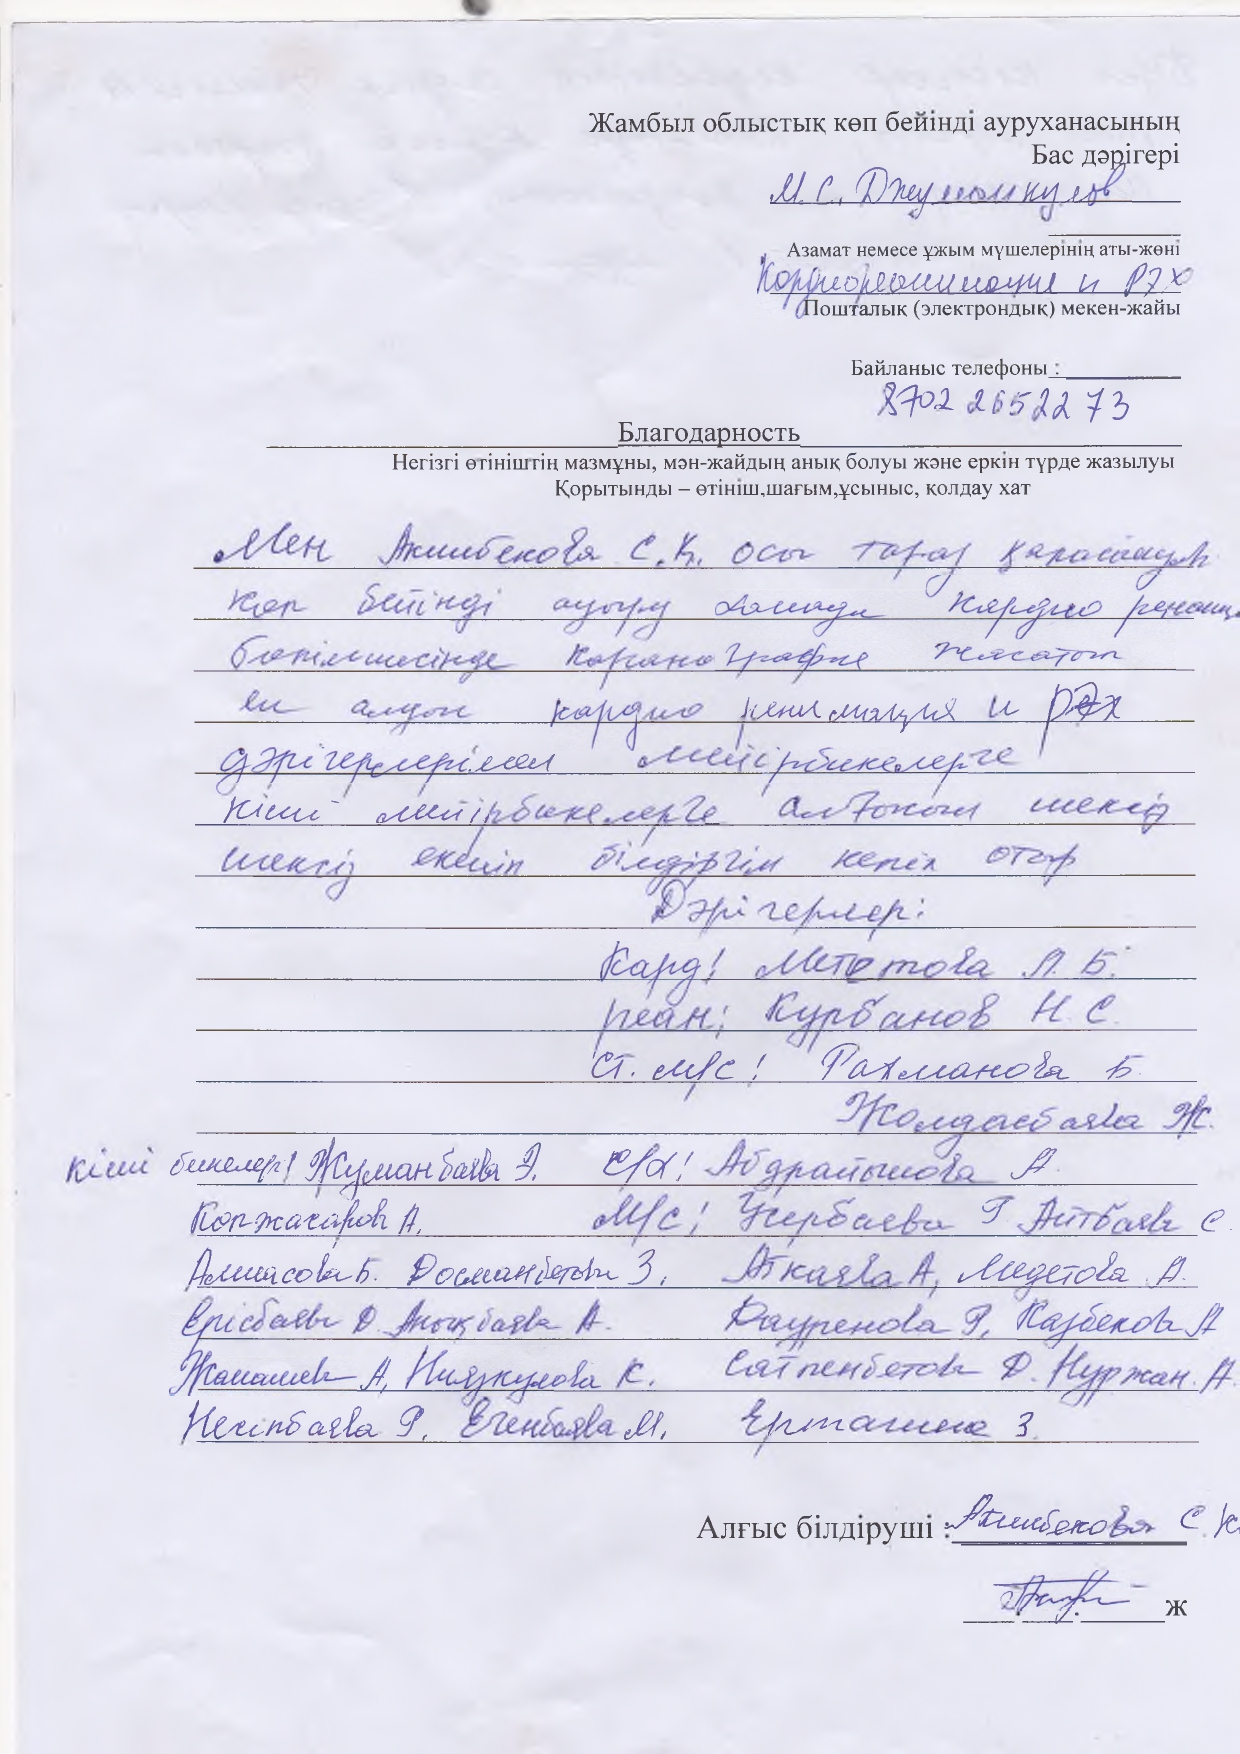 Жамбыл облыстық көп бейінді ауруханасының
Бас дәрігері
М.С. Джумашкулов
Азамат немесе ұжым мүшелерінің аты-жөні
Кардиореанимация и РЭХ
Пошталық (электрондық) мекен-жайы
Байланыс телефоны :
8702 2652273
Благодарность
Негізгі өтініштің мазмұны, мән-жайдың анық болуы және еркін түрде жазылуы
Қорытынды – өтініш,шағым,ұсыныс, қолдау хат
Мен Акимбекова С.К. осы тараз
көп бейінді ауыру кардио
бөлімшесінде каранографие жасатып
ең алдын кардио и рэх
дәрігерлерімен мейірбикелерге
кіші мейірбикелерге алғысым шексіз
шексіз екенін білдіргім келіп отыр
Дәрігерлер:
Кард! А. Б.
реан; Курбанов Н. С.
ст. м/с! Рахманова Б.
Жолдасбаева Ж.
кіші бикелер! Жуманбаева Э. с/х! Абдрайымова А.
Копжасаров А. м/с; Р Айтбаева С.
Алмасова Б. Досманбетова З, Аткаева А, Мидетова А.
Ерісбаева Д. Анықбаева А. Дауренова Р, Казбекова А
А, Ниязкулова К. Сатпенбетова Д. Нуржан. А.
Несіпбаева Р, Егенбаева М,
Алғыс білдіруші : Акимбекова С.К.
ж